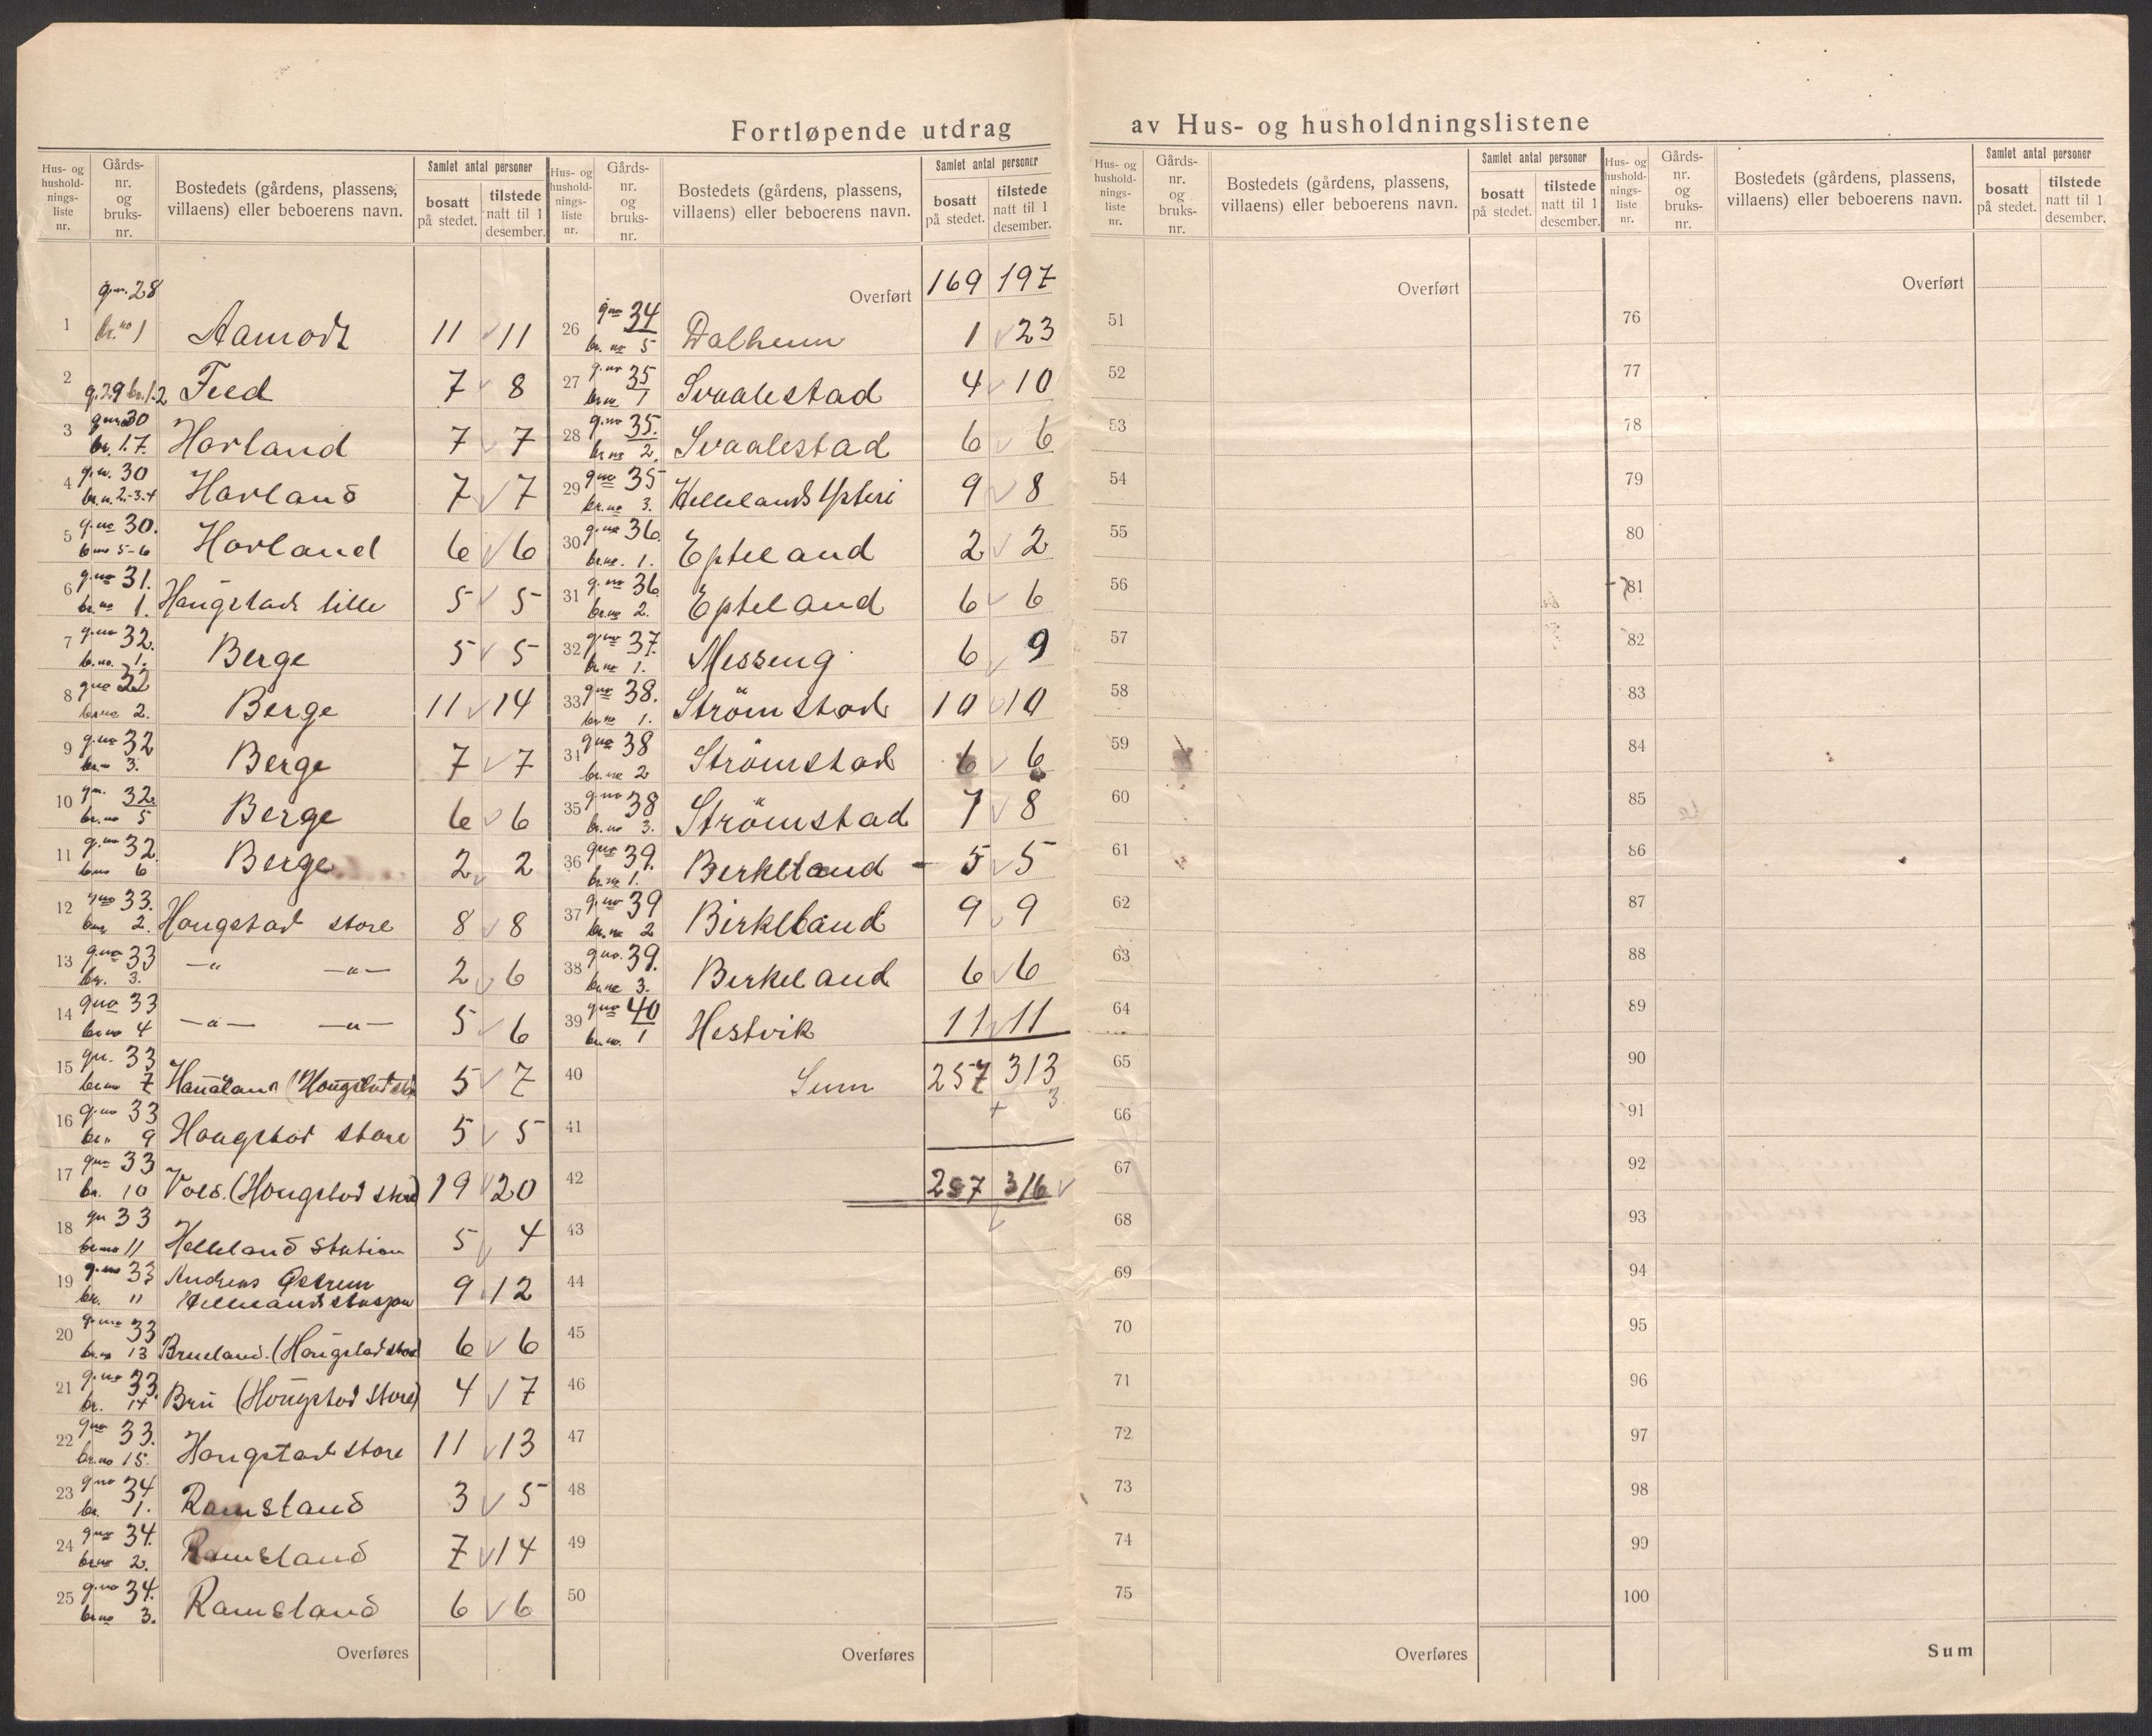 Fortløpende utdrag av Hus- og husholdningslistene
Hus- og husholdnings-liste nr. | Gårds-nr. og bruks-nr. | Bostedets (gårdens, plassens, villaens) eller beboerens navn. | Samlet antal personer | bosatt på stedet. | tilstede natt til 1 desember.
1 | g.nr. 28 br.no 1 | Aamodt | 11 | 11
2 | g. 29 br. 1-2 | Feed | 7 | 8
3 | gno 30 br. 1.7. | Horland | 7 | 7
4 | g.n. 30 br.n. 2-3-4 | Horland | 7 | 7
5 | g.no 30. bno 5-6 | Horland | 6 | 6
6 | g.no 31. br.no 1. | Haugstad lille | 5 | 5
7 | g.no 32. b.no. 1. | Berge | 5 | 5
8 | gno 32 br.no 2. | Berge | 11 | 14
9 | g.no 32 br.n 3. | Berge | 7 | 7
10 | gn. 32. br.no 5 | Berge | 6 | 6
11 | g.no 32 bno 6 | Berge | 2 | 2
12 | gno 33. 2. | Hougstad store | 8 | 8
13 | g.no 33 br. 3. | —"— —"— | 2 | 6
14 | gno 33 br.no 4 | —"— —"— | 5 | 6
15 | gn. 33 br.no 7 | (Hougstad | 5 | 7
16 | g.no 33 br. 9 | Hougstad store | 5 | 5
17 | gno 33 br. 10 | (Hougstad store) | 19 | 20
18 | gn 33 br.no 11 | Helleland Station | 5 | 4
19 | g.no 33 br. " | Andreas Østrem
Hellelands stasjon | 9 | 12
20 | g.no 33 br.no 13 | Brueland. (Hougstad store | 6 | 6
21 | g.no 33. br. 14 | Bru (Hougstad Store) | 4 | 7
22 | gno 33. br.no 15. | Hougstad store | 11 | 13
23 | gno 34 br. 1. | Ramsland | 3 | 5
24 | gno 34. br.no 2. | Ramsland | 7 | 14
25 | g.no 34. br.no 3. | Ramsland | 6 | 6
Overføres
Hus- og husholdnings-liste nr. | Gårds-nr. og bruks-nr. | Bostedets (gårdens, plassens, villaens) eller beboerens navn. | Samlet antal personer | bosatt på stedet. | tilstede natt til 1 desember.
Overført | 169 | 197
26 | gno 34 br. no 5 | Dalheim | 1 | 23
27 | g.no 35 br.no 1 | Svaalestad | 4 | 10
28 | g.no 35. br.no 2. | Svaalestad | 6 | 6
29 | gno 35 br.no 3. | Hellelands | 9 | 8
30 | g.no 36. br.no. 1. | Epteland | 2 | 2
31 | g.no 36 br.no 2. | Epteland | 6 | 6
32 | g.no 37. br.no 1. | Messeng | 6 | 9
33 | gno 38. br.no 1. | Strömstad | 10 | 10
34 | gno 38 br.no 2 | Strömstad | 6 | 6
35 | gno 38 br.no 3. | Strömstad | 7 | 8
36 | gno 39. br.no 1. | Berkeland | 5 | 5
37 | g.no 39 br.no 2 | Birkeland | 9 | 9
38 | gno. 39. br.no 3. | Berkeland | 6 | 6
39 | gno 40 br.no. 1 | Hestvik | 11 | 11
40 | Sum | 257 | 313
+ 3
41
42 | 257 | 316
43
44
45
46
47
48
49
50
Overføres
Hus- og husholdnings-liste nr. | Gårds-nr. og bruks-nr. | Bostedets (gårdens, plassens, villaens) eller beboerens navn. | Samlet antal personer | bosatt på stedet. | tilstede natt til 1 desember.
Overført
51
52
53
54
55
56
57
58
59
60
61
62
63
64
65
66
67
68
69
70
71
72
73
74
75
Overføres
Hus- og husholdnings-liste nr. | Gårds-nr. og bruks-nr. | Bostedets (gårdens, plassens, villaens) eller beboerens navn. | Samlet antal personer | bosatt på stedet. | tilstede natt til 1 desember.
Overført
76
77
78
79
80
81
82
83
84
85
86
87
88
89
90
91
92
93
94
95
96
97
98
99
100
Sum